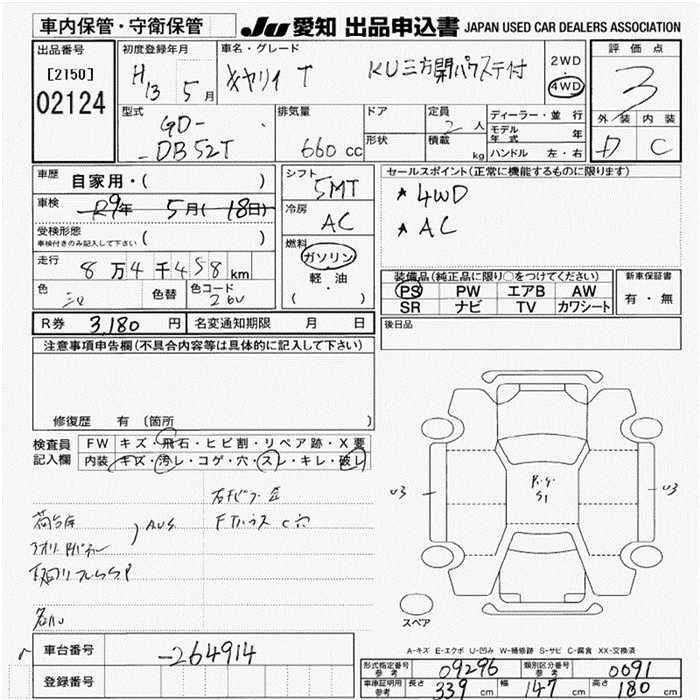 車内保管・守衛保管
JU 愛知 出品申込書 JAPAN USED CAR DEALERS ASSOCIATION
出品番号
[2150]
02124
初度登録年月
H13 5月
車名・グレード
キャリイ T KU三方開パワステ付
2WD
・
4WD
評価点
3
外装 内装
D C
型式
GD-
DB52T
排気量
660cc
ドア
形状
定員
2人
積載
kg
ディーラー・並行
モデル年式 年
ハンドル 左・右
車歴
自家用・( )
車検
R9年 5月(18日)
受検形態
車検付きのみ記入して下さい ( )
走行
8万4千458km
色
色替
色コード
26U
シフト
5MT
冷房
AC
燃料
ガソリン
軽・油
( )
セールスポイント(正常に機能するものに限ります)
* 4WD
* AC
装備品(純正品に限り○をつけてください)
PS PW エアB AW
SR ナビ TV カワシート
新車保証書
有・無
後日品
R券 3,180 円 名変通知期限 月 日
注意事項申告欄(不具合内容等は具体的に記入して下さい)
修復歴 有 〔箇所 〕
検査員記入欄
FW キズ・飛石・ヒビ割・リペア跡・X要
内装 キズ・汚レ・コゲ・穴・スレ・キレ・破レ
荷台
U3
U3
R.G
S1
スペア
A-キズ E-エクボ U-凹み W-補修跡 S-サビ C-腐食 XX-交換済
車台番号
-264914
登録番号
形式指定番号 参考 09296 類別区分番号 参考 0091
車庫証明用 参考 長さ 339cm 幅 147cm 高さ 180cm